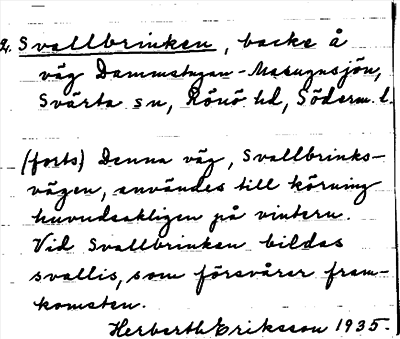 2. Svallbrinken, backe å
väg Dammstugan-Masugnsjön,
Svärta sn, Rönö hd, Söderm. l.
(forts) Denna väg, Svallbrinks-
vägen, användes till körning
huvudsakligen på vintern.
Vid Svallbrinken bildas
svallis, som försvårar fram-
komsten.
Herberth Eriksson 1935.